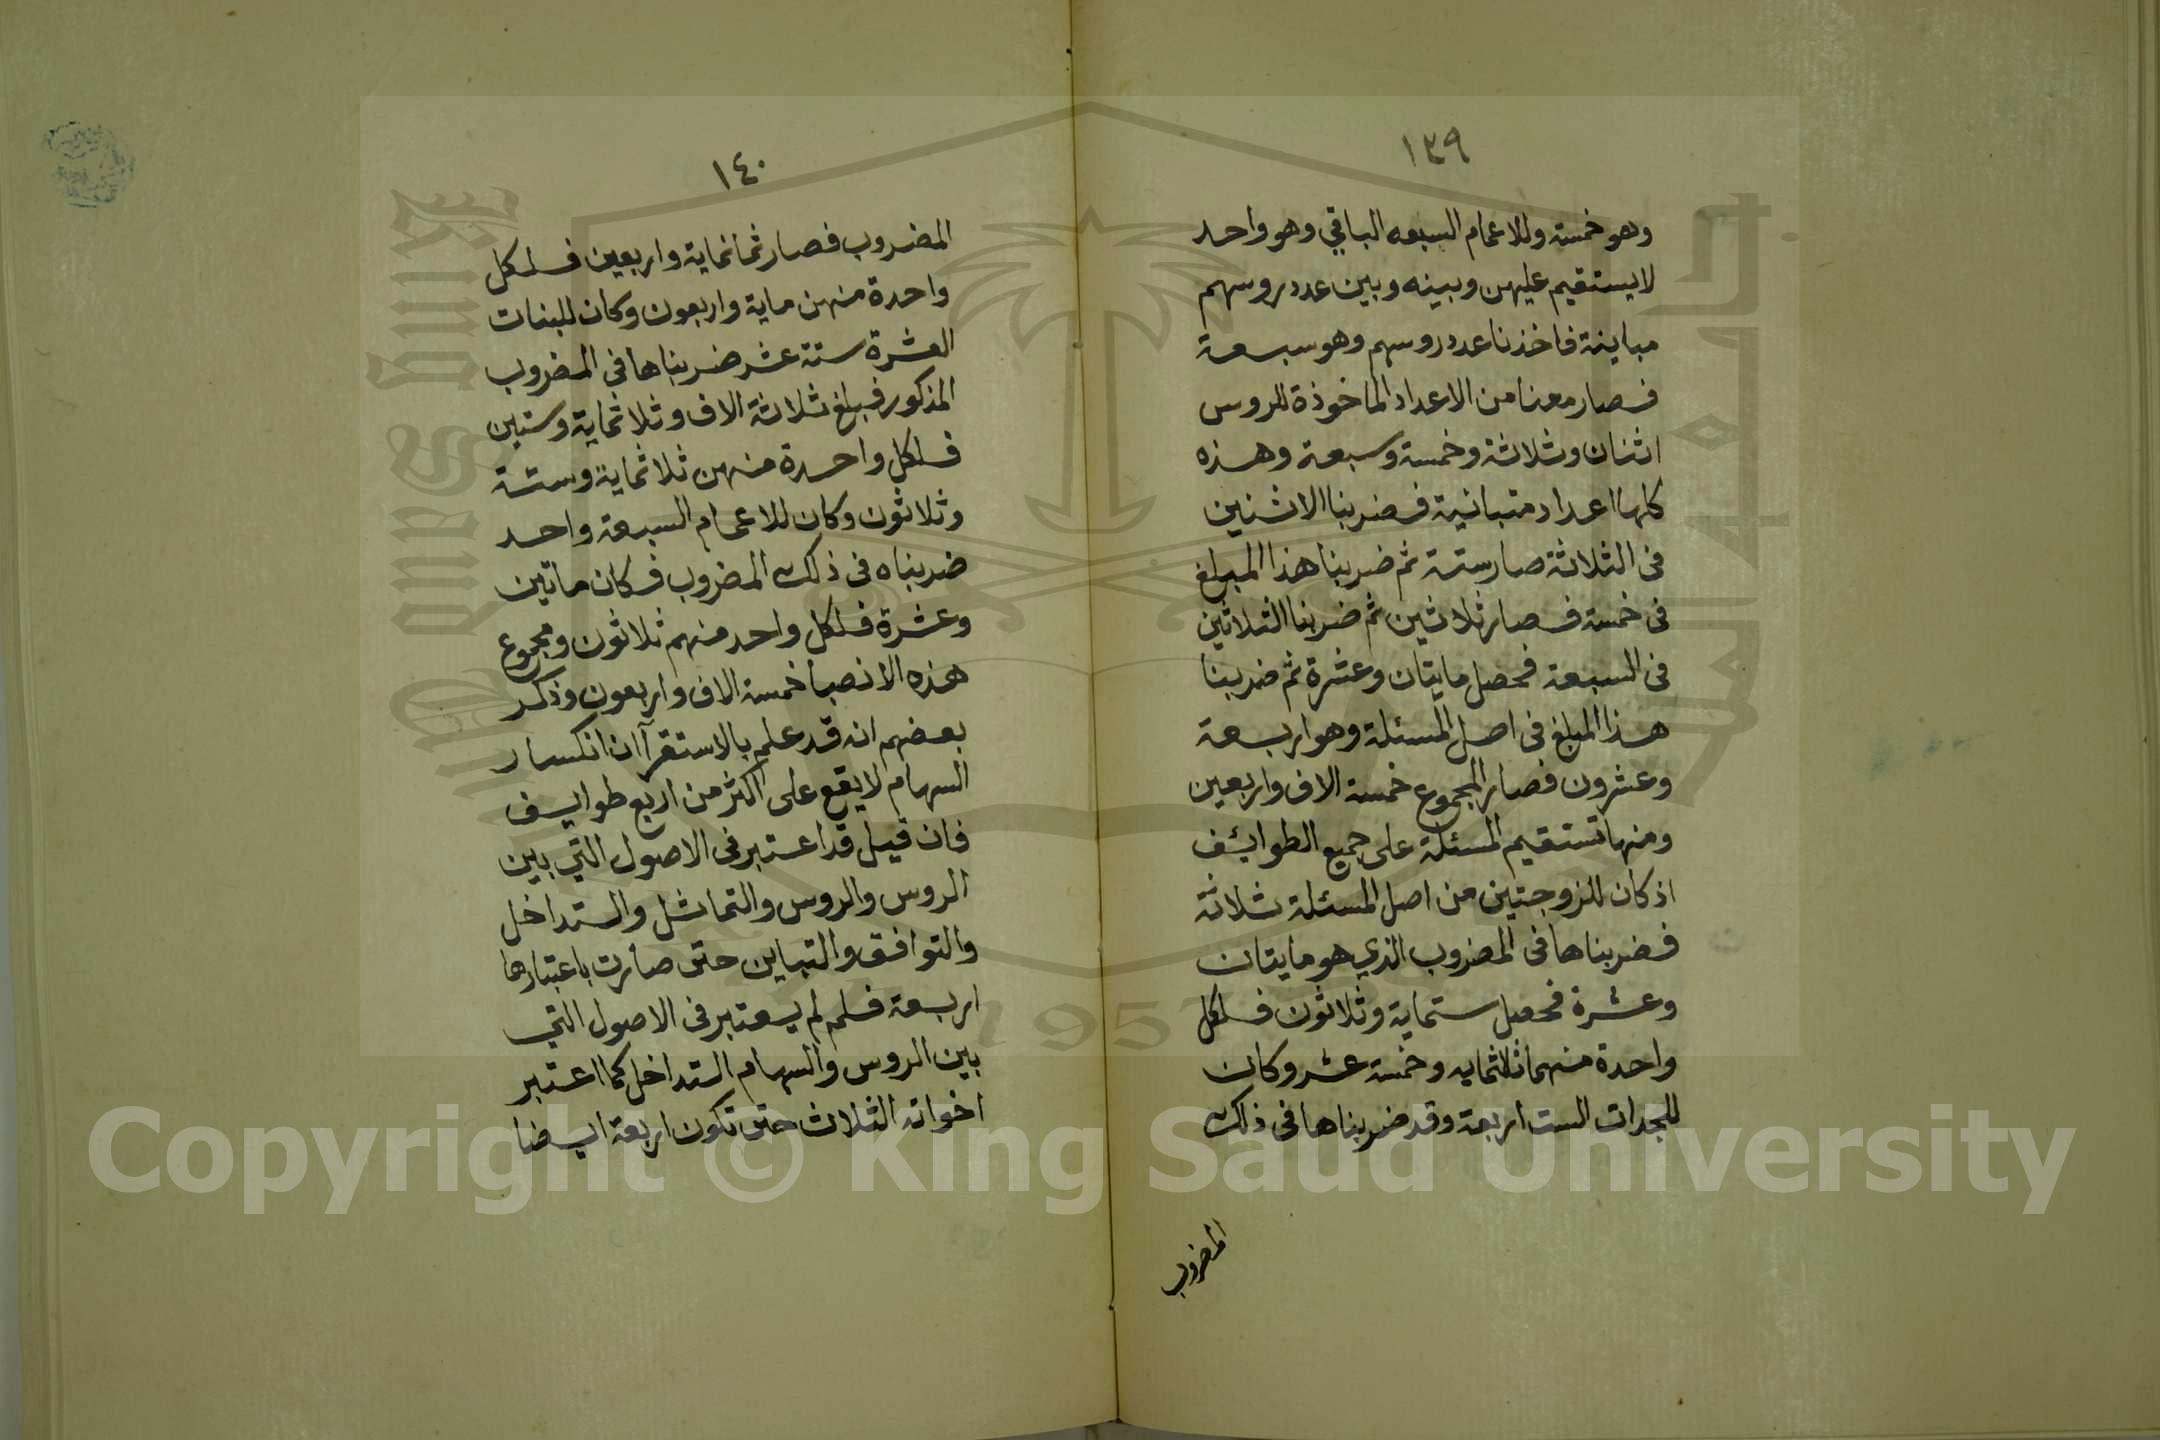 ١٣٩
وهو خمسة وللاعمام السبعه الباقي وهو واحد
لا يستقيم عليهن وبينه وبين عدد روسهم
مباينة فاخذنا عدد روسهم وهو سبعة
فصار معنا من الاعداد الماخوذة للروس
اثنان وثلاثة وخمسة وسبعة وهذه
كلها اعداد متبانية فضربنا الاثنين
فى الثلاثة صار ستة ثم ضربنا هذا المبلغ
فى خمسة فصار ثلاثين ثم ضربنا الثلاثين
فى السبعة فحصل مايتان وعشرة ثم ضربنا
هذا المبلغ فى اصل المسئلة وهو اربعة
وعشرون فصار المجموع خمسة الاف واربعين
ومنها تستقيم المسئلة على جميع الطوائف
اذ كان للزوجتين من اصل المسئلة ثلاثة
فضربناها فى المضروب الذي هو مايتان
وعشرة فحصل ستماية وثلاثون فلكل
واحدة منهما ثلثمايه وخمسة عشر وكان
للجدات الست اربعة وقد ضربناها فى ذلك
المضروب
١٤٠
المضروب فصار ثمانماية واربعين فلكل
واحدة منهن ماية واربعون وكان للبنات
العشرة ستة عشر ضربناها فى المضروب
المذكور فبلغ ثلاثة الاف وثلاثماية وستين
فلكل واحدة منهن ثلاثماية وستة
وثلاثون وكان للاعمام السبعة واحد
ضربناه فى ذلك المضروب فكان ماتين
وعشرة فلكل واحد منهم ثلاثون ومجموع
هذه الانصبا خمسة الاف واربعون وذكر
بعضهم انه قد علم بالاستقرآ ان انكسار
السهام لا يقع على اكثر من اربع طوايف
فان قيل قد اعتبر فى الاصول التي بين
الروس والروس والتماثل والتداخل
والتوافق والتباين حتى صارت باعتبارها
اربعة فلم لم يعتبر فى الاصول التي
بين الروس والسهام التداخل كما اعتبر
اخواته الثلاث حتى تكون اربعة ايضا
Copyright © King Saud University
1957